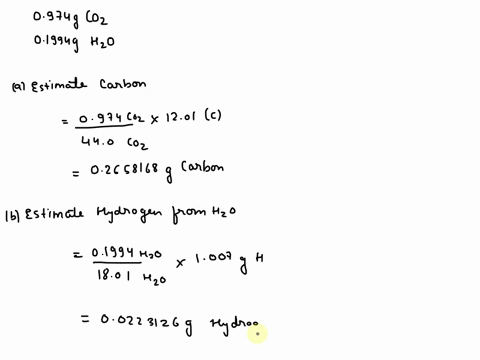 0.974g CO2
0.1994g H2O
(a) Estimate Carbon
= 0.974 CO2 / 44.0 CO2 × 12.01 (C)
= 0.2658168 g Carbon
(b) Estimate Hydrogen from H2O
= 0.1994 H2O / 18.01 H2O × 1.007 g H
= 0.0223126 g Hydrog